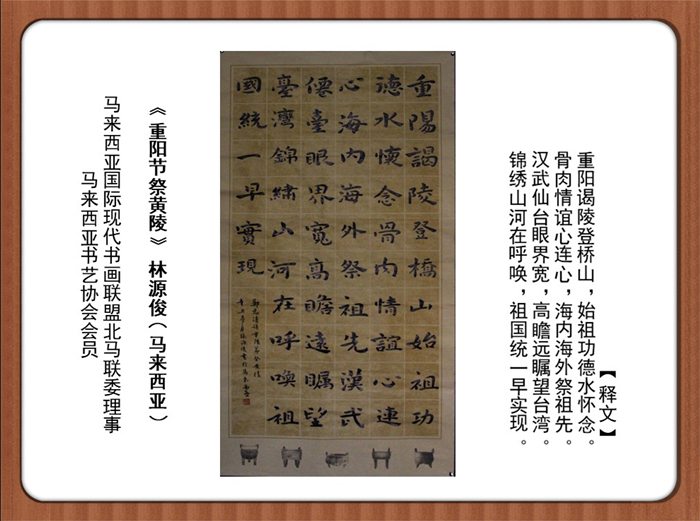 【释文】
重阳谒陵登桥山，始祖功德水怀念。
骨肉情谊心连心，海内海外祭祖先。
汉武仙台眼界宽，高瞻远瞩望台湾。
锦绣山河在呼唤，祖国统一早实现。
重陽謁陵登橋山始祖功
德水懷念骨肉情誼心連
心海内海外祭祖先漢武
僊臺眼界寬高瞻遠矚望
臺灣錦繡山河在呼喚祖
國統一早實現
《重阳节祭黄陵》林源俊（马来西亚）
马来西亚国际现代书画联盟北马联委理事
马来西亚书艺协会会员